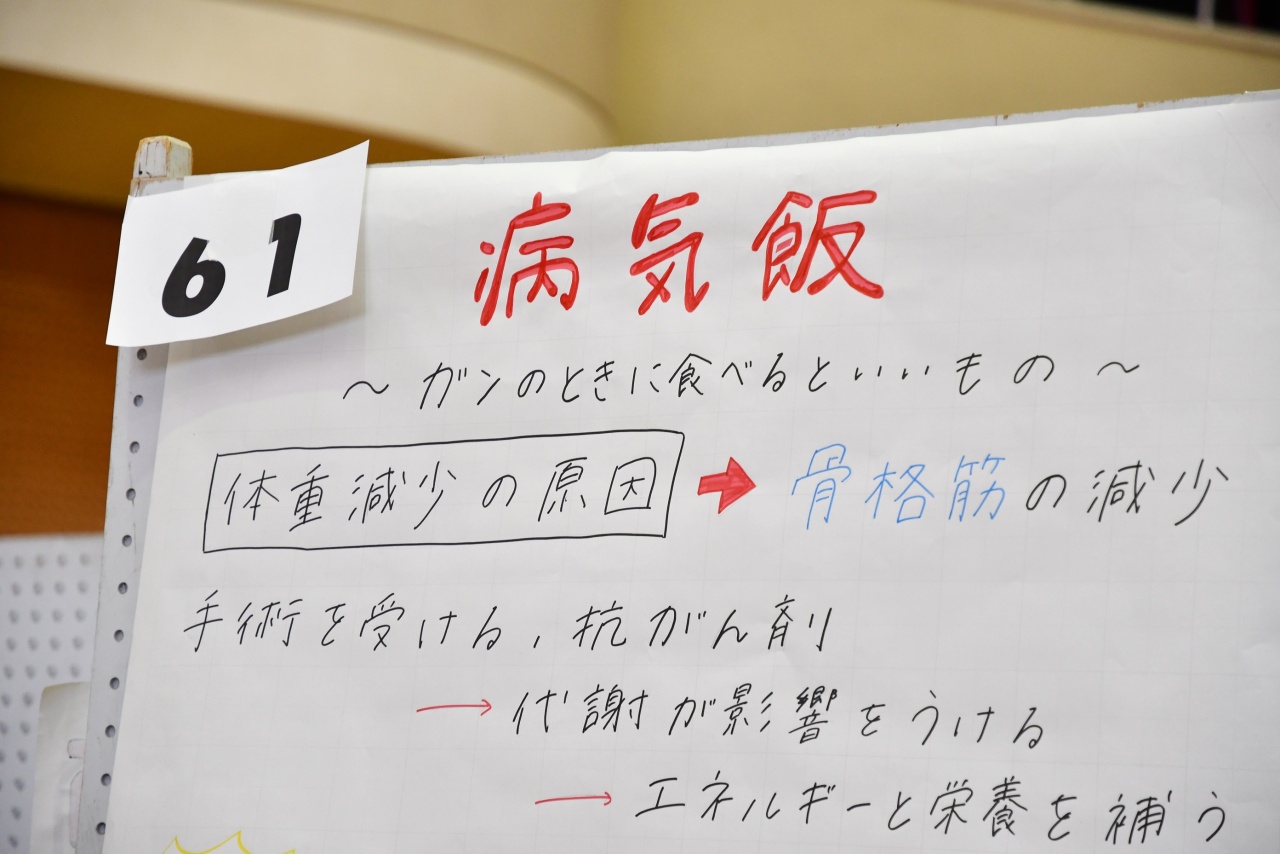 61
病気飯
～ガンのときに食べるといいもの～
体重減少の原因 → 骨格筋の減少
手術を受ける, 抗がん剤
→ 代謝が影響をうける
→ エネルギーと栄養を補う